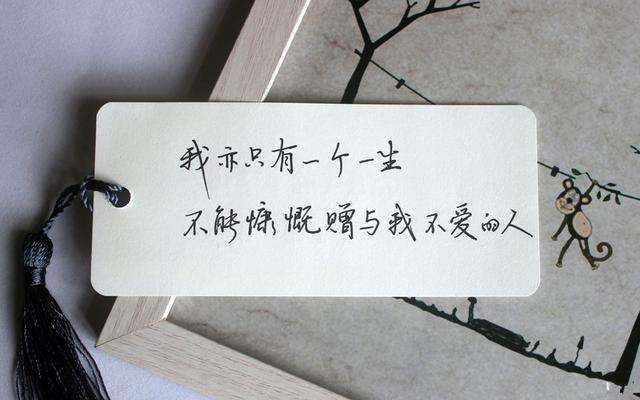 我亦只有一个一生
不能慷慨赠与我不爱的人